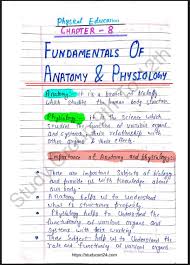 Physical Education
CHAPTER - 8
FUNDAMENTALS OF
ANATOMY & PHYSIOLOGY
Anatomy:- it is a branch of biology
which studies the human body structure.
Physiology:- it is the science which
studies the function of various organs
and systems, their relationship with
other organs & their effects.
Importance of Anatomy and Physiology:-
These are important subjects of biology
and provide us with knowledge about
our body.
Anatomy helps us to understand
what is structured properly.
Physiology helps to understand the
functioning of various organs and
systems with their working.
These subject help us to understand the
role and functioning of various organs
https://studyuser24.com